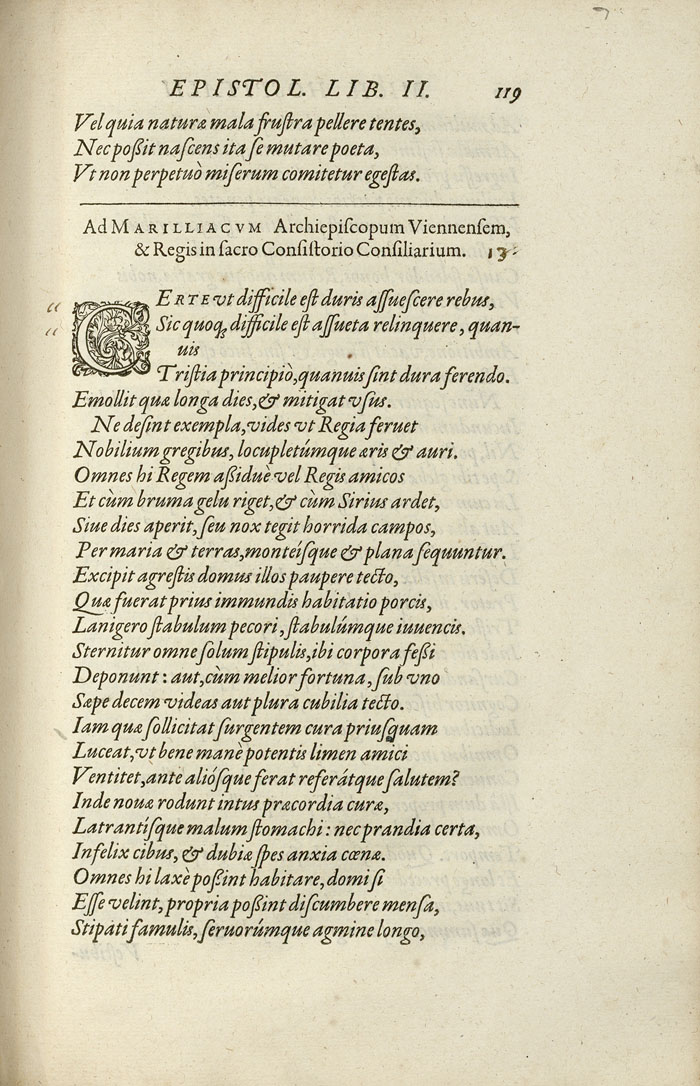 EPISTOL. LIB. II. 119
Vel quia naturæ mala frustra pellere tentes,
Nec poßit nascens ita se mutare poeta,
Vt non perpetuò miserum comitetur egestas.
Ad MARILLIACVM Archiepiscopum Viennensem,
& Regis in sacro Consistorio Consiliarium. 13.
CERTE vt difficile est duris assuescere rebus,
Sic quoq; difficile est assueta relinquere, quan-
uis
Tristia principiò, quanuis sint dura ferendo.
Emollit quæ longa dies, & mitigat vsus.
Ne desint exempla, vides vt Regia feruet
Nobilium gregibus, locupletúmque æris & auri.
Omnes hi Regem aßiduè vel Regis amicos
Et cùm bruma gelu riget, & cùm Sirius ardet,
Siue dies aperit, seu nox tegit horrida campos,
Per maria & terras, monteísque & plana sequuntur.
Excipit agrestis domus illos paupere tecto,
Quæ fuerat prius immundis habitatio porcis,
Lanigero stabulum pecori, stabulúmque iuuencis.
Sternitur omne solum stipulis, ibi corpora feßi
Deponunt: aut, cùm melior fortuna, sub vno
Sæpe decem videas aut plura cubilia tecto.
Iam quæ sollicitat surgentem cura priusquam
Luceat, vt bene manè potentis limen amici
Ventitet, ante aliósque ferat referátque salutem?
Inde nouæ rodunt intus præcordia curæ,
Latrantísque malum stomachi: nec prandia certa,
Infelix cibus, & dubiæ spes anxia cœnæ.
Omnes hi laxè poßint habitare, domi si
Esse velint, propria poßint discumbere mensa,
Stipati famulis, seruorúmque agmine longo,